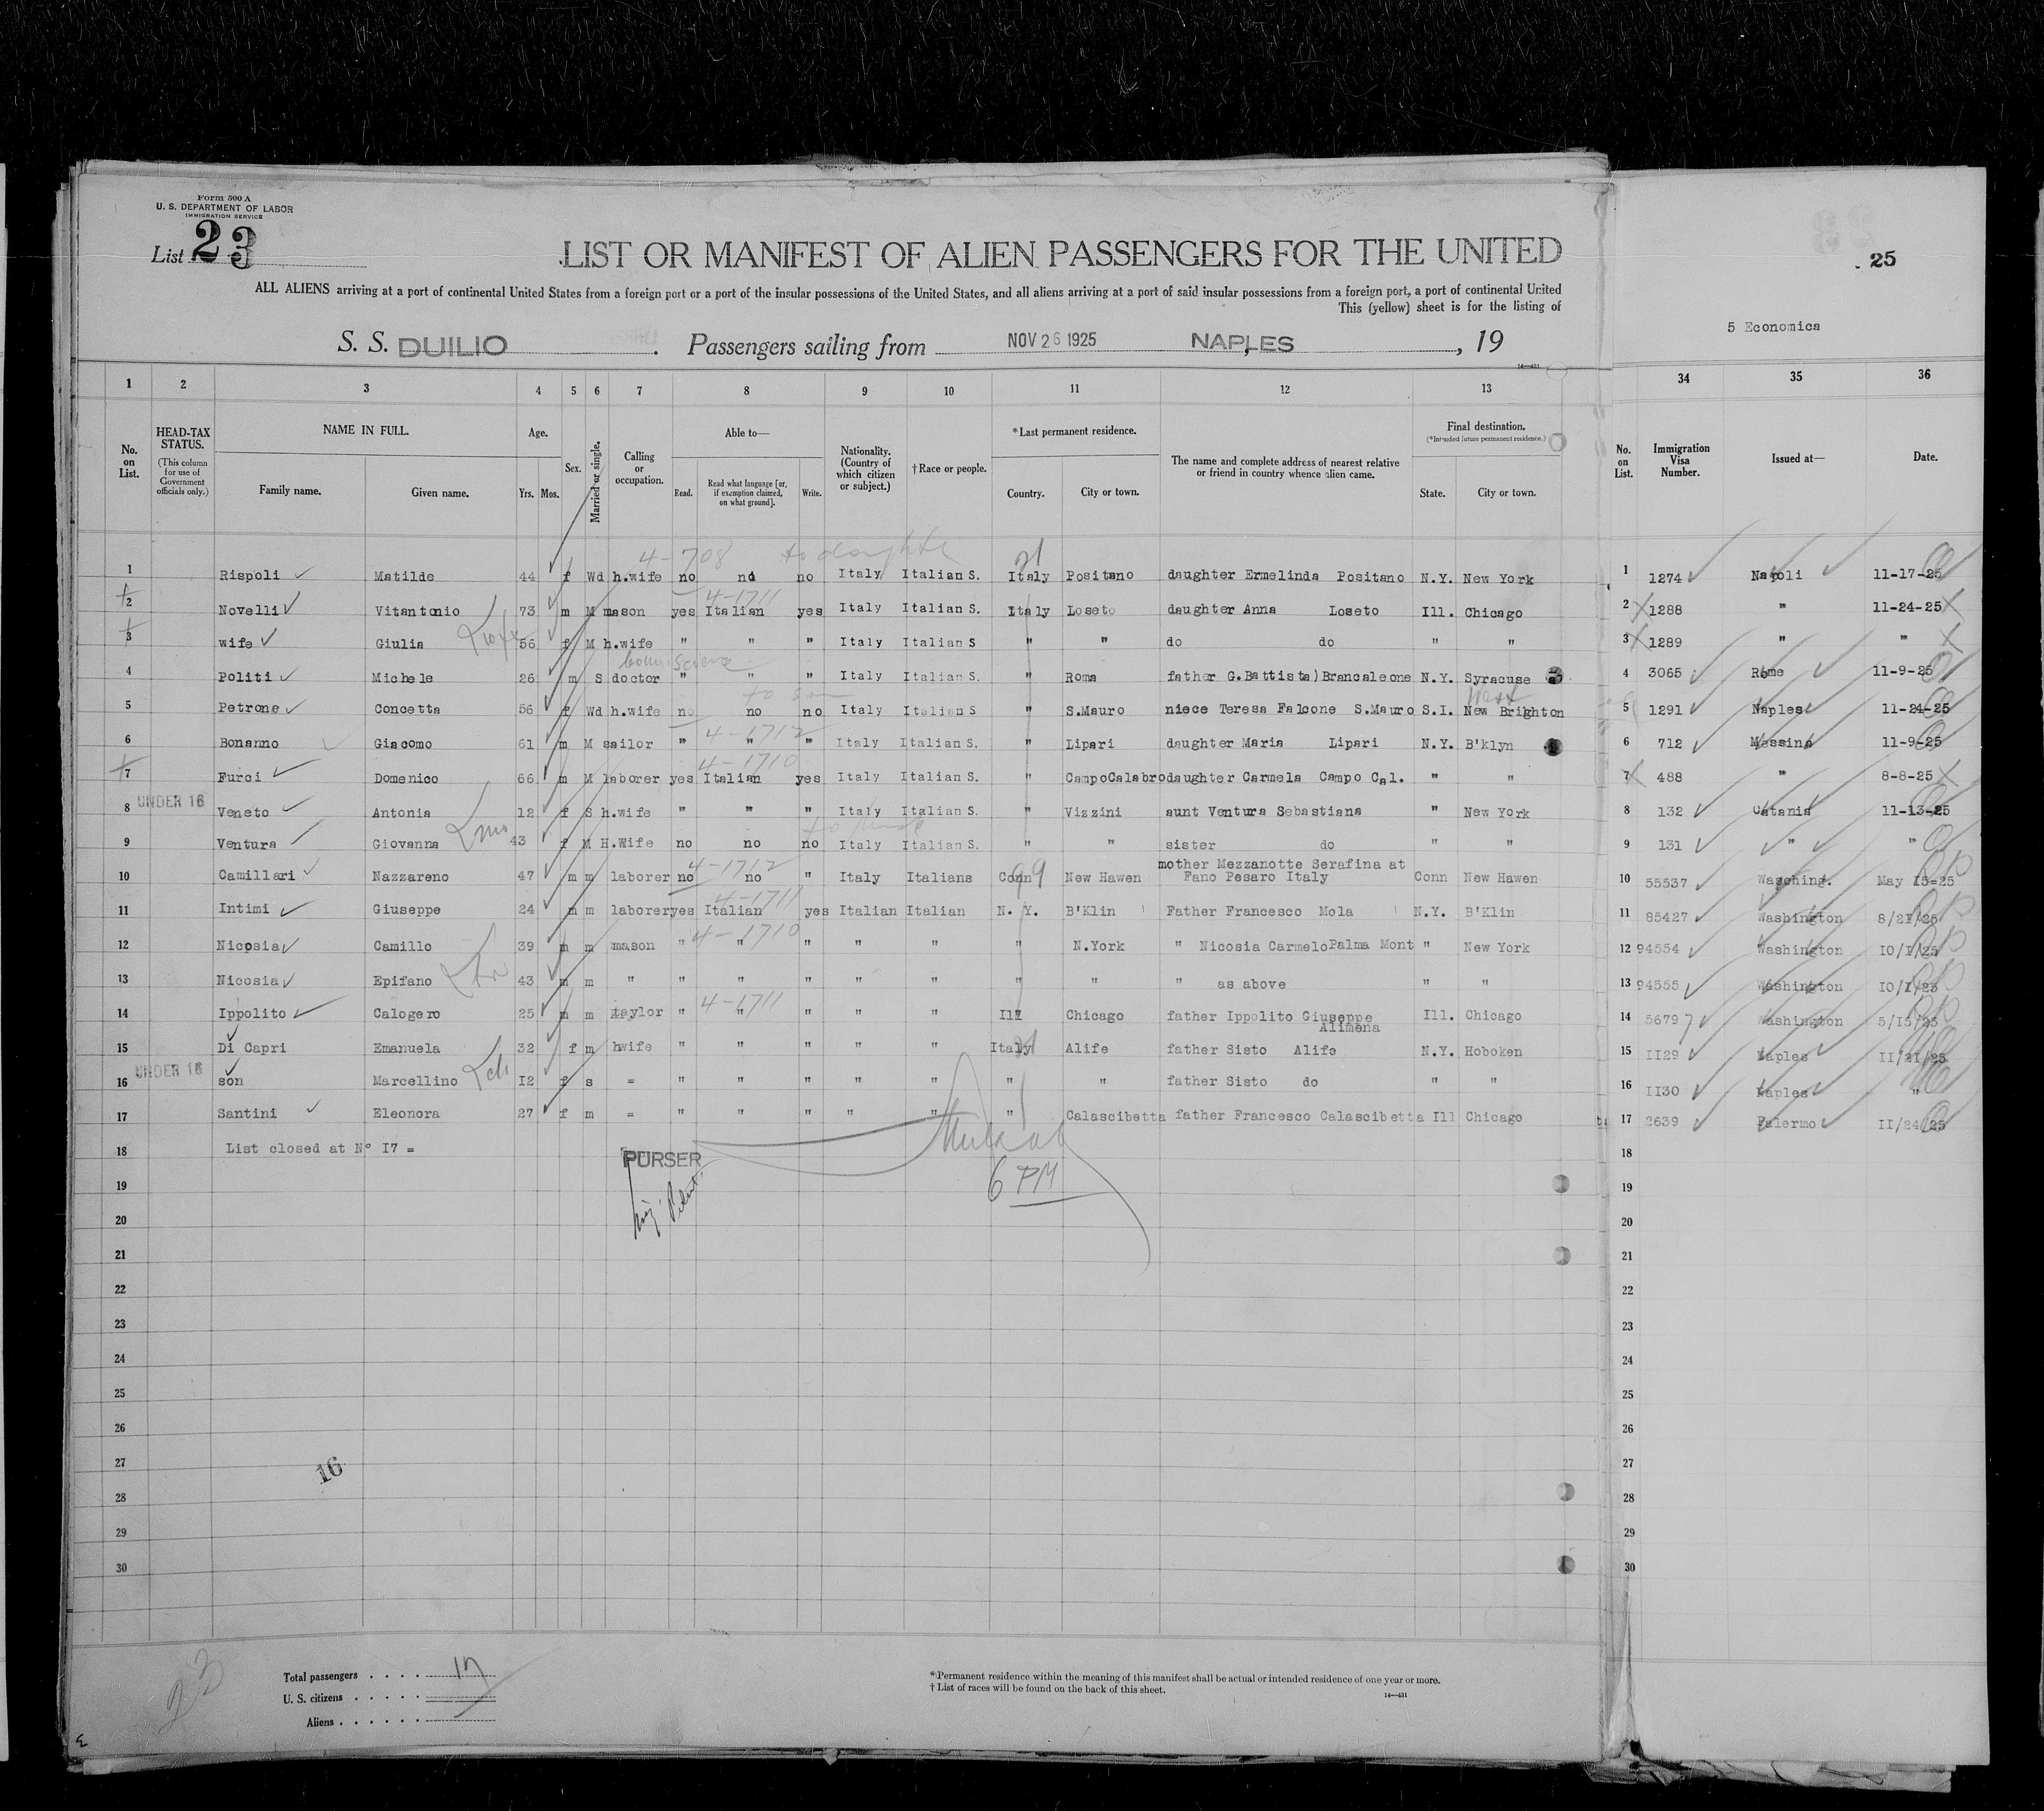 Form 500 A
U. S. DEPARTMENT OF LABOR
IMMIGRATION SERVICE
List 23
LIST OR MANIFEST OF ALIEN PASSENGERS FOR THE UNITED
25
ALL ALIENS arriving at a port of continental United States from a foreign port or a port of the insular possessions of the United States, and all aliens arriving at a port of said insular possessions from a foreign port, a port of continental United
This (yellow) sheet is for the listing of
5 Economica
S. S. DUILIO Passengers sailing from NOV 26 1925 NAPLES, 19
14—431
1 2 3 4 5 6 7 8 9 10 11 12 13 34 35 36
No. on List. HEAD-TAX STATUS. (This column for use of Government officials only.) NAME IN FULL. Family name. Given name. Age. Yrs. Mos. Sex. Married or single. Calling or occupation. Able to— Read. Read what language [or, if exemption claimed, on what ground]. Write. Nationality. (Country of which citizen or subject.) †Race or people. *Last permanent residence. Country. City or town. The name and complete address of nearest relative or friend in country whence alien came. Final destination. (*Intended future permanent residence.) State. City or town. No. on List. Immigration Visa Number. Issued at— Date.
4-708 to daughter
1 Rispoli Matilde 44 f Wd h.wife no no no Italy Italian S. Italy Positano daughter Ermelinda Positano N.Y. New York 1 1274 Napoli 11-17-25
4-1711
2 Novelli Vitantonio 73 m M mason yes Italian yes Italy Italian S. Italy Loseto daughter Anna Loseto Ill. Chicago 2 1288 " 11-24-25
3 wife Giulia 56 f M h.wife " " " Italy Italian S " " do do " " 3 1289 " "
4 Politi Michele 26 m S doctor " " " Italy Italian S. " Roma father G.Battista) Brancaleone N.Y. Syracuse 4 3065 Rome 11-9-25
to son West
5 Petrone Concetta 56 f Wd h.wife no no no Italy Italian S " S.Mauro niece Teresa Falcone S.Mauro S.I. New Brighton 5 1291 Naples 11-24-25
4-1712
6 Bonanno Giacomo 61 m M sailor " " " Italy Italian S. " Lipari daughter Maria Lipari N.Y. B'klyn 6 712 Messina 11-9-25
4-1710
7 Furci Domenico 66 m M laborer yes Italian yes Italy Italian S. " CampoCalabro daughter Carmela Campo Cal. " " 7 488 " 8-8-25
8 UNDER 16 Veneto Antonia 12 f S h.wife " " " Italy Italian S. " Vizzini aunt Ventura Sebastiana " New York 8 132 Catania 11-13-25
9 Ventura Giovanna 43 f M H.Wife no no no Italy Italian S. " " sister do " " 9 131 " "
4-1712 mother Mezzanotte Serafina at
10 Camillari Nazzareno 47 m m laborer no no " Italy Italians Conn 99 New Hawen Fano Pesaro Italy Conn New Hawen 10 55537 Wasching. May 15=25
4-1711
11 Intimi Giuseppe 24 m m laborer yes Italian yes Italian Italian N. Y. B'Klin Father Francesco Mola N.Y. B'Klin 11 85427 Washington 8/21/25
4-1710
12 Nicosia Camillo 39 m m mason " " " " " " N.York " Nicosia Carmelo Palma Mont " New York 12 94554 Washington 10/1/25
13 Nicosia Epifano 43 m m " " " " " " " " " as above " " 13 94555 Washington 10/1/25
4-1711
14 Ippolito Calogero 25 m m taylor " " " " " Ill Chicago father Ippolito Giuseppe Ill. Chicago 14 56797 Washington 5/15/25
Alimena
15 Di Capri Emanuela 32 f m hwife " " " " " Italy Alife father Sisto Alife N.Y. Hoboken 15 II29 Naples II/21/25
16 UNDER 16 son Marcellino I2 f s = " " " " " " " father Sisto do " " 16 II30 Naples "
17 Santini Eleonora 27 f m = " " " " " " Calascibetta father Francesco Calascibetta Ill Chicago 17 2639 Palermo II/24/25
18 List closed at N° I7 = 18
PURSER
6 PM
19 19
20 20
21 21
22 22
23 23
24 24
25 25
26 26
27 27
16
28 28
29 29
30 30
23
Total passengers . . . . 17
U. S. citizens . . . . .
Aliens . . . . . .
*Permanent residence within the meaning of this manifest shall be actual or intended residence of one year or more.
† List of races will be found on the back of this sheet.
14—431